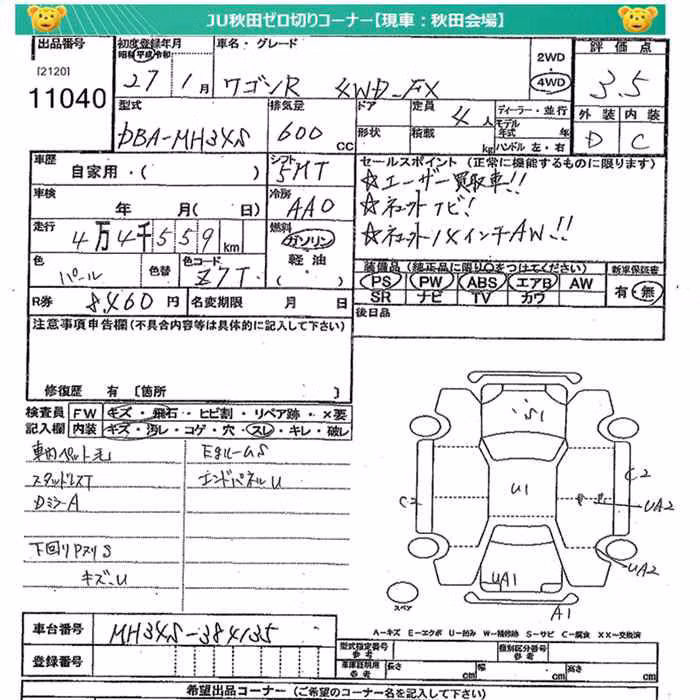 JU秋田ゼロ切りコーナー【現車：秋田会場】
出品番号 初度登録年月 車名・グレード 評価点
昭和 平成 令和 2WD
[2120] 27年1月 ワゴンR 4WD-FX 4WD 3.5
11040 型式 排気量 ドア 定員 4人 ディーラー・並行 外装 内装
DBA-MH34S 600CC 形状 積載 kg モデル年式 年 D C
ハンドル 左・右
車歴 自家用・( ) シフト 5MT セールスポイント (正常に機能するものに限ります)
☆ユーザー買取車!!
車検 年 月(日) 冷房 AAC ☆ネコットナビ!
走行 4万4千559km 燃料 ガソリン・軽油 ☆ネコット14インチAW!!
色 パール 色替 色コード Z7T 装備品(純正品に限り○をつけてください) 新車保証書
PS PW ABS エアB AW 有・無
R券 8,460円 名変期限 月 日 SR ナビ TV カワ
注意事項申告欄(不具合内容等は具体的に記入して下さい) 後日品
修復歴 有 〔箇所 〕
検査員 FW キズ・飛石・ヒビ割・リペア跡・×要
記入欄 内装 キズ・汚レ・コゲ・穴・スレ・キレ・破レ
車内ペット毛 EgルームS
スタッドレスT エンドパネルU
DミラーA
下回りPスリS
キズ・U
S1
C2 U1 C2
UA2
UA2
UA1
A1
スペア
A-キズ E-エクボ U-凹み W-補修跡 S-サビ C-腐食 XX-交換済
車台番号 MH34S-384135 型式指定番号 参考 類別区分番号 参考
登録番号 車庫証明用 参考 長さ cm 幅 cm 高さ cm
希望出品コーナー (ご希望のコーナー名を記入して下さい)